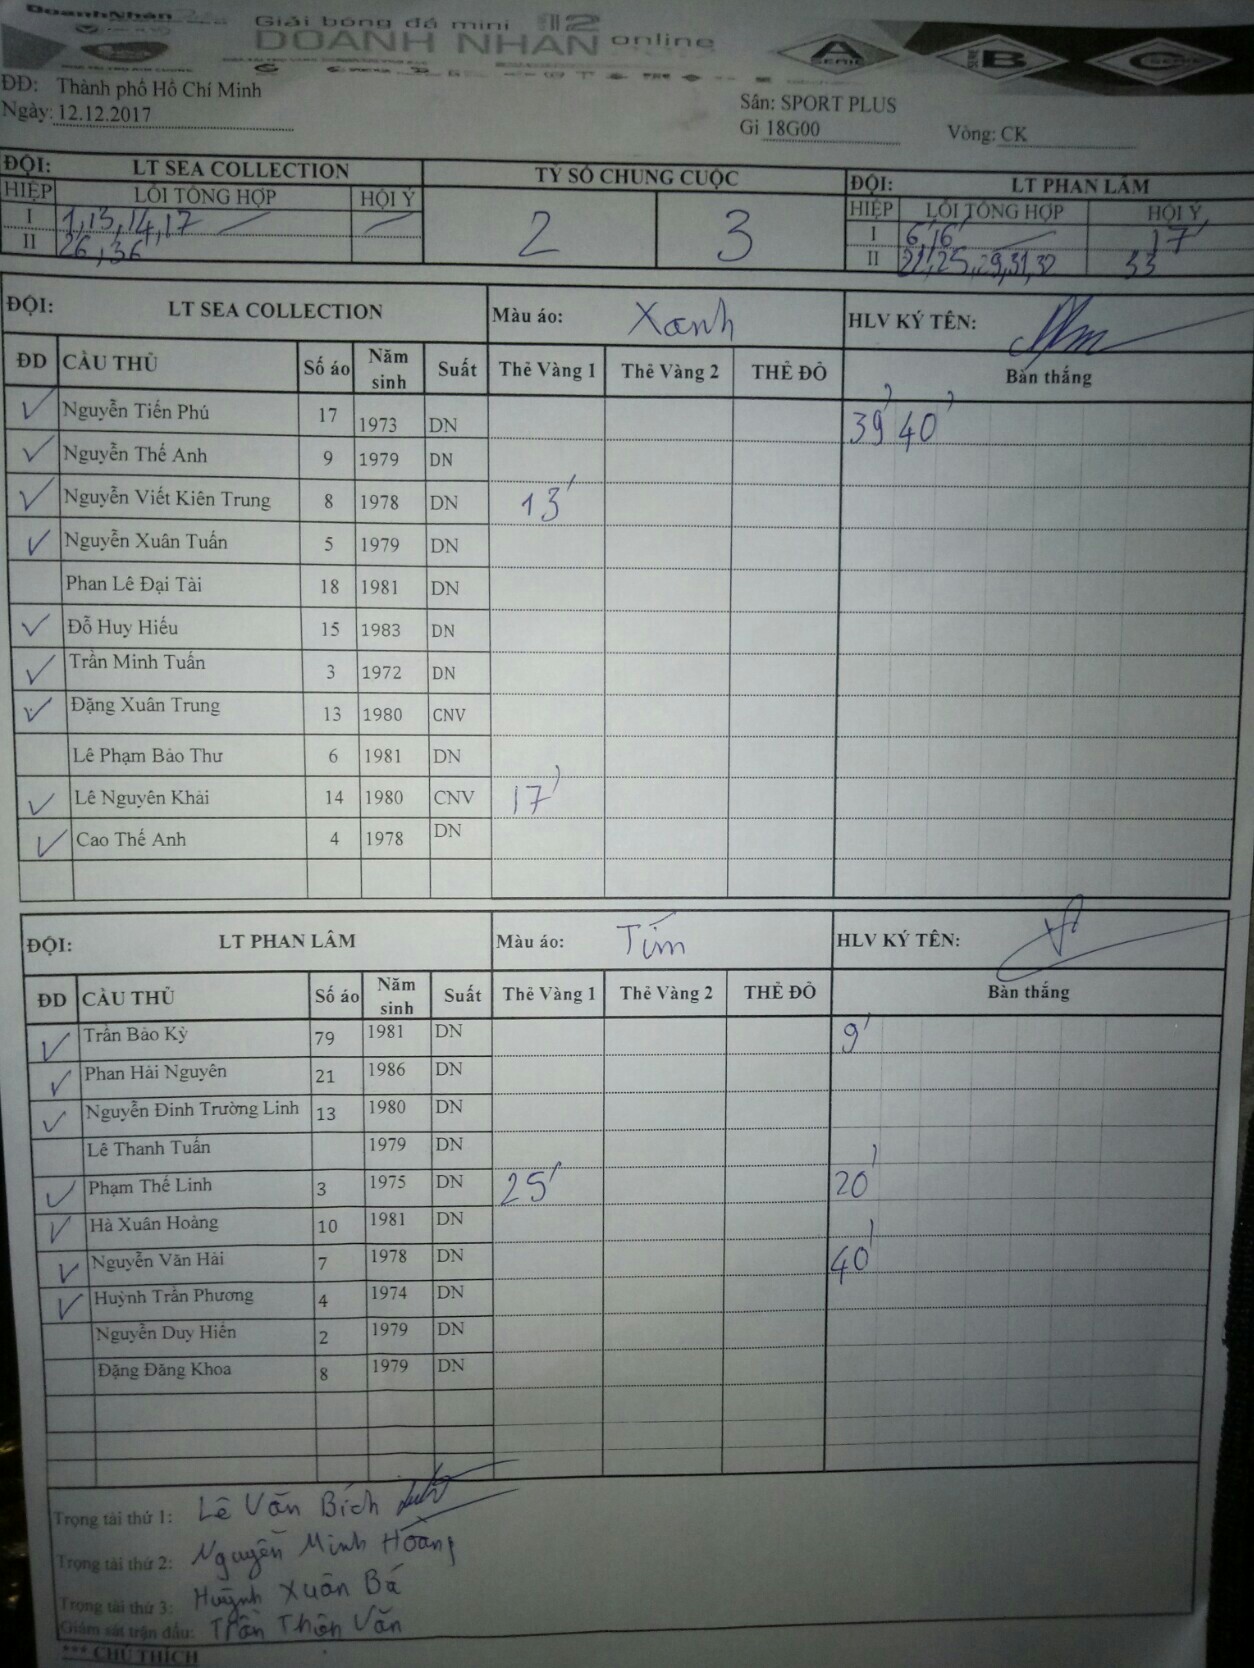 DoanhNhân
Giải bóng đá mini 12
DOANH NHÂN online
A SERIE
SERIE B
C SERIE
ĐĐ: Thành phố Hồ Chí Minh
Ngày: 12.12.2017
Sân: SPORT PLUS
Gi 18G00 Vòng: CK
ĐỘI: LT SEA COLLECTION TỶ SỐ CHUNG CUỘC ĐỘI: LT PHAN LÂM
HIỆP LỖI TỔNG HỢP HỘI Ý 2 3 HIỆP LỖI TỔNG HỢP HỘI Ý
I 1, 13, 14, 17 I 6' 16' 17'
II 26, 36 II 22, 25, 29, 31, 32 33
ĐỘI: LT SEA COLLECTION Màu áo: Xanh HLV KÝ TÊN:
ĐD CẦU THỦ Số áo Năm sinh Suất Thẻ Vàng 1 Thẻ Vàng 2 THẺ ĐỎ Bàn thắng
✓ Nguyễn Tiến Phú 17 1973 DN 39' 40'
✓ Nguyễn Thế Anh 9 1979 DN
✓ Nguyễn Viết Kiên Trung 8 1978 DN 13'
✓ Nguyễn Xuân Tuấn 5 1979 DN
Phan Lê Đại Tài 18 1981 DN
✓ Đỗ Huy Hiếu 15 1983 DN
✓ Trần Minh Tuấn 3 1972 DN
✓ Đặng Xuân Trung 13 1980 CNV
Lê Phạm Bảo Thư 6 1981 DN
✓ Lê Nguyên Khải 14 1980 CNV 17'
✓ Cao Thế Anh 4 1978 DN
ĐỘI: LT PHAN LÂM Màu áo: Tím HLV KÝ TÊN:
ĐD CẦU THỦ Số áo Năm sinh Suất Thẻ Vàng 1 Thẻ Vàng 2 THẺ ĐỎ Bàn thắng
✓ Trần Bảo Kỳ 79 1981 DN 9'
✓ Phan Hải Nguyên 21 1986 DN
✓ Nguyễn Đình Trường Linh 13 1980 DN
Lê Thanh Tuấn 1979 DN
✓ Phạm Thế Linh 3 1975 DN 25' 20'
✓ Hà Xuân Hoảng 10 1981 DN
✓ Nguyễn Văn Hải 7 1978 DN 40'
✓ Huỳnh Trần Phương 4 1974 DN
Nguyễn Duy Hiến 2 1979 DN
Đặng Đăng Khoa 8 1979 DN
Trọng tài thứ 1: Lê Văn Bích
Trọng tài thứ 2: Nguyễn Minh Hoàng
Trọng tài thứ 3: Huỳnh Xuân Bá
Giám sát trận đấu: Trần Thôn Văn
*** CHÚ THÍCH